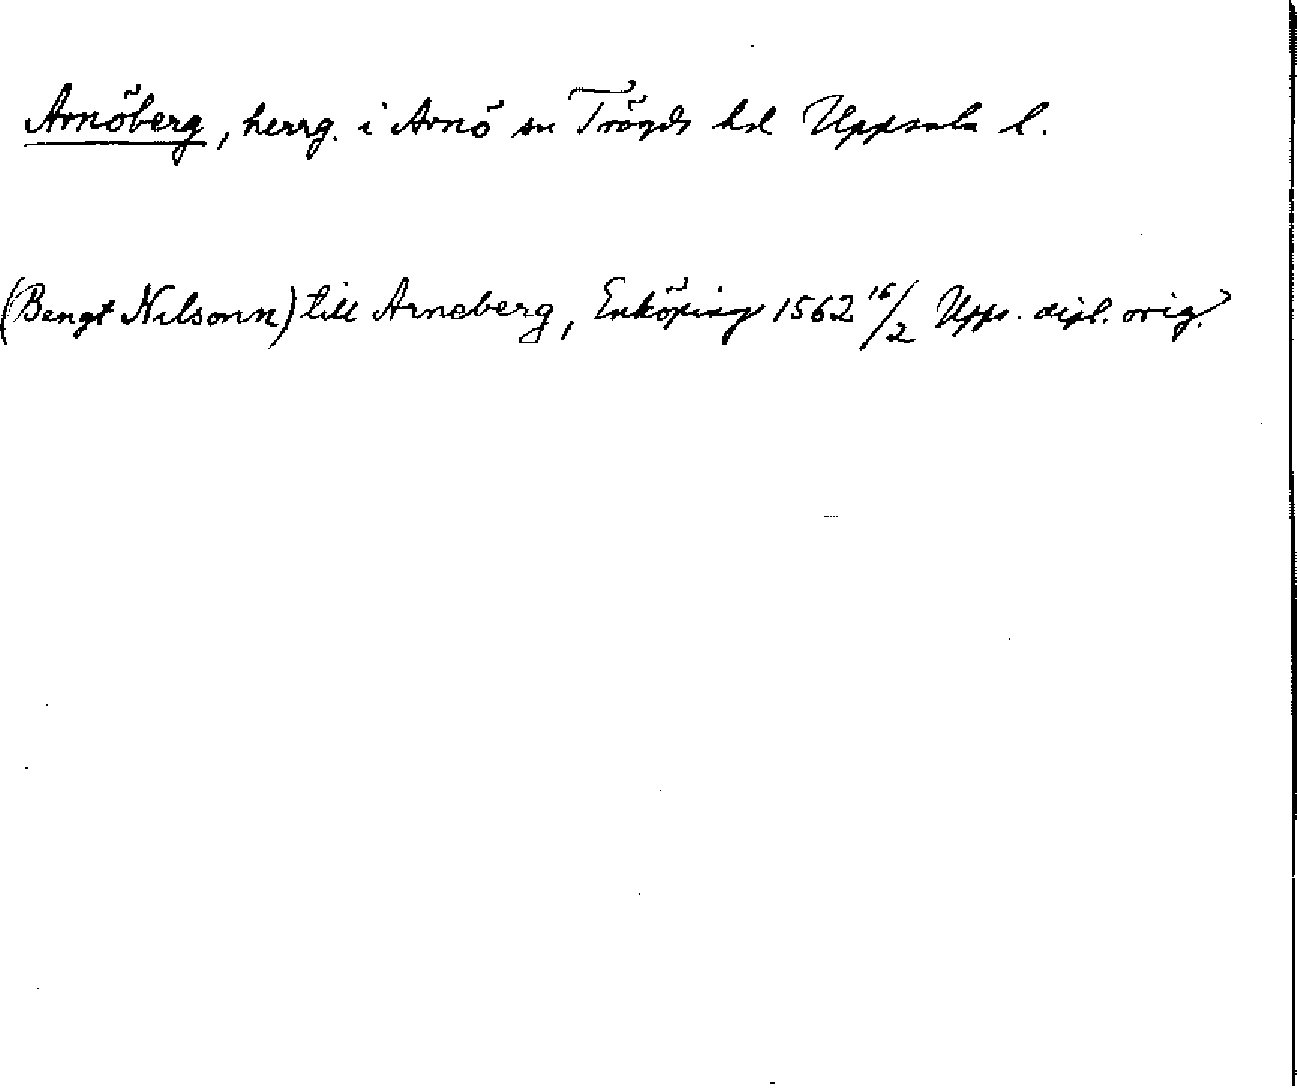 Arnöberg, herrg. i Arnö sn Trögds hd Uppsala l.
(Bengt Nilsonn) till Arneberg, Enköping 1562 16/2 Upps. dipl. orig.